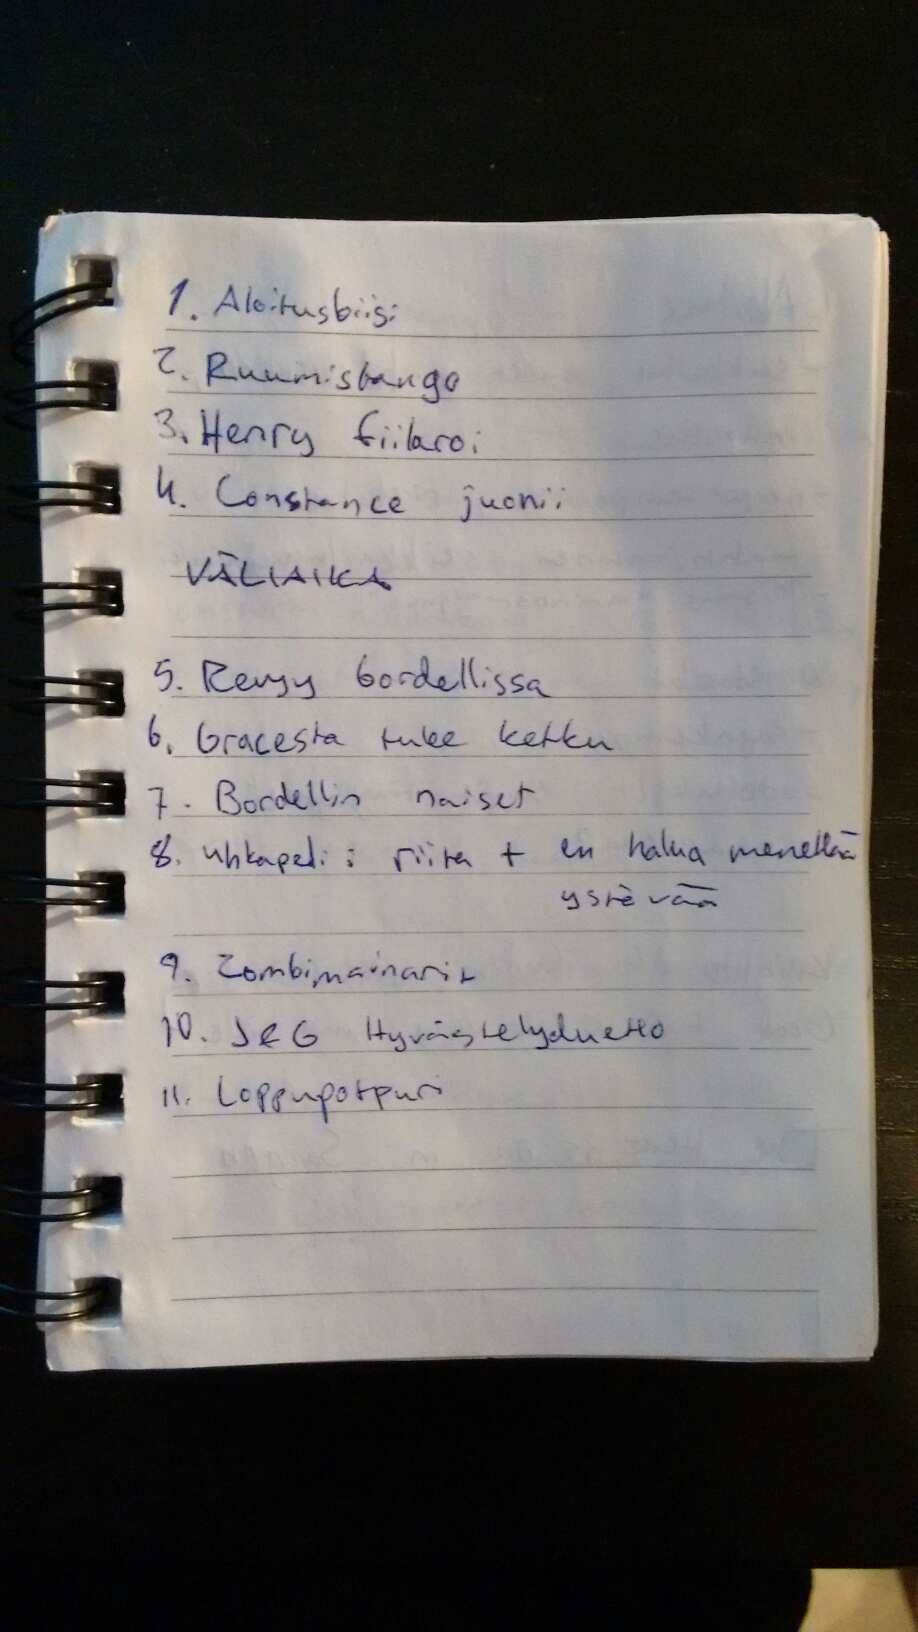 1. Aloitusbiisi
2. Ruumistango
3. Henry fiilaroi
4. Constance juonii
VÄLIAIKA
5. Revyy bordellissa
6. Gracesta tulee ketku
7. Bordellin naiset
8. Uhkapeli: riita + en halua menettää
ystävää
9. Zombimainarit
10. J&G Hyvästelyduetto
11. Loppupotpuri